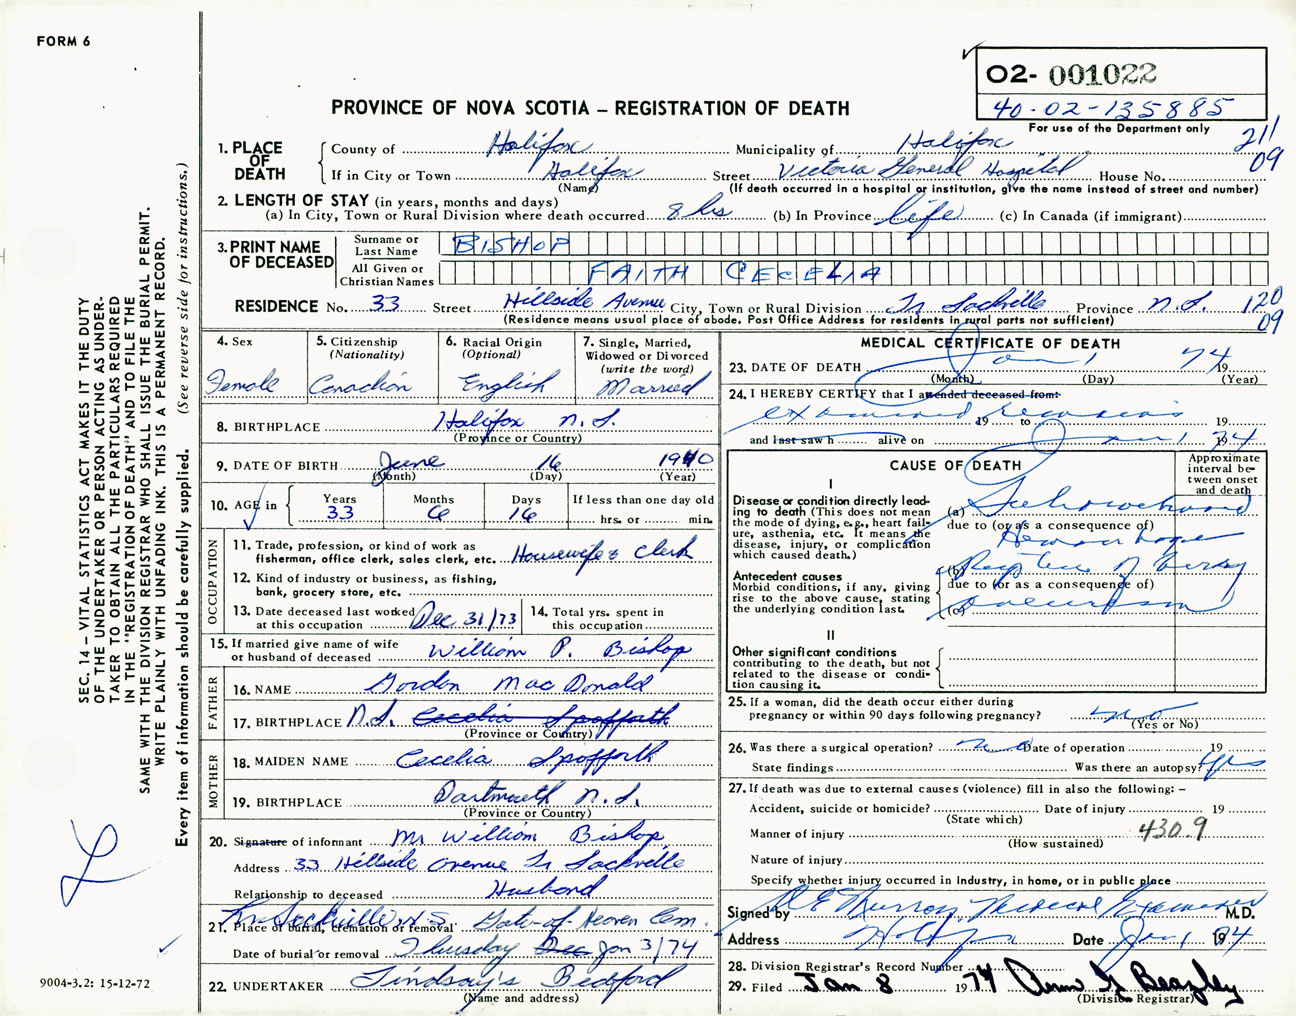 FORM 6
O2- 001022
40-02-135885
For use of the Department only
PROVINCE OF NOVA SCOTIA – REGISTRATION OF DEATH
211
09
1. PLACE OF DEATH
County of Halifax Municipality of Halifax
If in City or Town Halifax Street Victoria General Hospital House No.
(Name) (If death occurred in a hospital or institution, give the name instead of street and number)
2. LENGTH OF STAY (in years, months and days)
(a) In City, Town or Rural Division where death occurred 8 hrs (b) In Province life (c) In Canada (if immigrant)
3. PRINT NAME OF DECEASED
Surname or Last Name BISHOP
All Given or Christian Names FAITH CECELIA
RESIDENCE No. 33 Street Hillside Avenue City, Town or Rural Division Lr Sackville Province N.S. 120
09
(Residence means usual place of abode. Post Office Address for residents in rural parts not sufficient)
4. Sex Female
5. Citizenship (Nationality) Canadian
6. Racial Origin (Optional) English
7. Single, Married, Widowed or Divorced (write the word) Married
8. BIRTHPLACE Halifax N.S.
(Province or Country)
9. DATE OF BIRTH June 16 1940
(Month) (Day) (Year)
10. AGE in Years 33 Months 6 Days 16 If less than one day old hrs. or min.
OCCUPATION
11. Trade, profession, or kind of work as fisherman, office clerk, sales clerk, etc. Housewife & Clerk
12. Kind of industry or business, as fishing, bank, grocery store, etc.
13. Date deceased last worked at this occupation Dec 31/73
14. Total yrs. spent in this occupation
15. If married give name of wife or husband of deceased William P. Bishop
FATHER
16. NAME Gordon MacDonald
17. BIRTHPLACE N.S. Cecelia Spofforth
(Province or Country)
MOTHER
18. MAIDEN NAME Cecelia Spofforth
19. BIRTHPLACE Dartmouth N.S.
(Province or Country)
20. Signature of informant Mr William Bishop
Address 33 Hillside Avenue Lr Sackville
Relationship to deceased Husband
21. Place of burial, cremation or removal Lr. Sackville N.S. Gate-of-Heaven Cem.
Date of burial or removal Thursday Dec Jan 3/74
22. UNDERTAKER Lindsay's Bedford
(Name and address)
MEDICAL CERTIFICATE OF DEATH
23. DATE OF DEATH Jan 1 1974
(Month) (Day) (Year)
24. I HEREBY CERTIFY that I attended deceased from:
examined remains 19 to 19
and last saw h alive on Jan 1 1974
CAUSE OF DEATH
Approximate interval between onset and death
I
Disease or condition directly leading to death (This does not mean the mode of dying, e.g., heart failure, asthenia, etc. It means the disease, injury, or complication which caused death.)
(a) Subarachnoid
due to (or as a consequence of)
Hemorrhage
Antecedent causes
Morbid conditions, if any, giving rise to the above cause, stating the underlying condition last.
(b) Rupture of berry
due to (or as a consequence of)
(c) aneurysm
II
Other significant conditions contributing to the death, but not related to the disease or condition causing it.
25. If a woman, did the death occur either during pregnancy or within 90 days following pregnancy? no
(Yes or No)
26. Was there a surgical operation? no Date of operation 19
State findings Was there an autopsy? Yes
27. If death was due to external causes (violence) fill in also the following: –
Accident, suicide or homicide? Date of injury 19
(State which)
Manner of injury 430.9
(How sustained)
Nature of injury
Specify whether injury occurred in industry, in home, or in public place
Signed by Murray Medical Examiner M.D.
Address Halifax Date Jan 1 1974
28. Division Registrar's Record Number
29. Filed Jan 8 1974 Ann G Beazley
(Division Registrar)
SEC. 14 – VITAL STATISTICS ACT MAKES IT THE DUTY
OF THE UNDERTAKER OR PERSON ACTING AS UNDER-
TAKER TO OBTAIN ALL THE PARTICULARS REQUIRED
IN THE "REGISTRATION OF DEATH" AND TO FILE THE
SAME WITH THE DIVISION REGISTRAR WHO SHALL ISSUE THE BURIAL PERMIT.
WRITE PLAINLY WITH UNFADING INK. THIS IS A PERMANENT RECORD.
Every item of information should be carefully supplied. (See reverse side for instructions.)
9004-3.2: 15-12-72